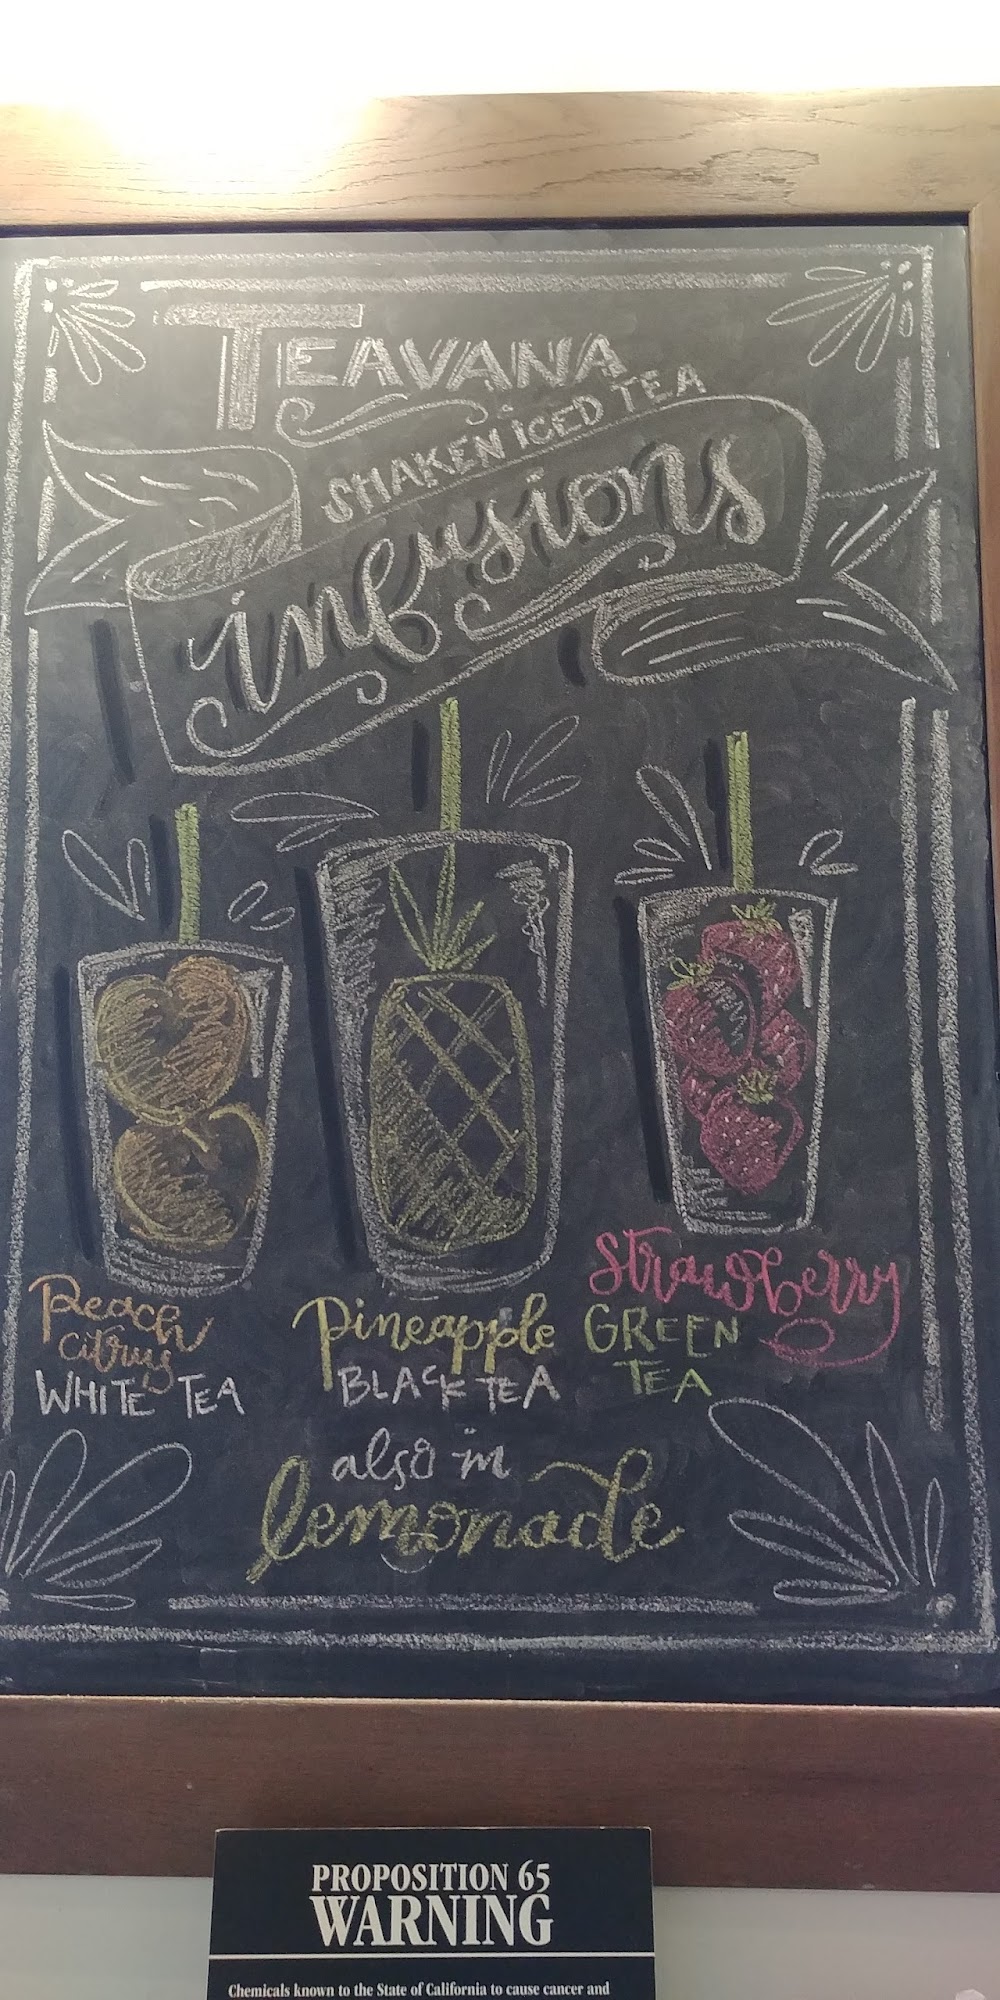 TEAVANA
SHAKEN ICED TEA
infusions
Peach
citrus
WHITE TEA
Pineapple
BLACK TEA
Strawberry
GREEN
TEA
also in
lemonade
PROPOSITION 65
WARNING
Chemicals known to the State of California to cause cancer and